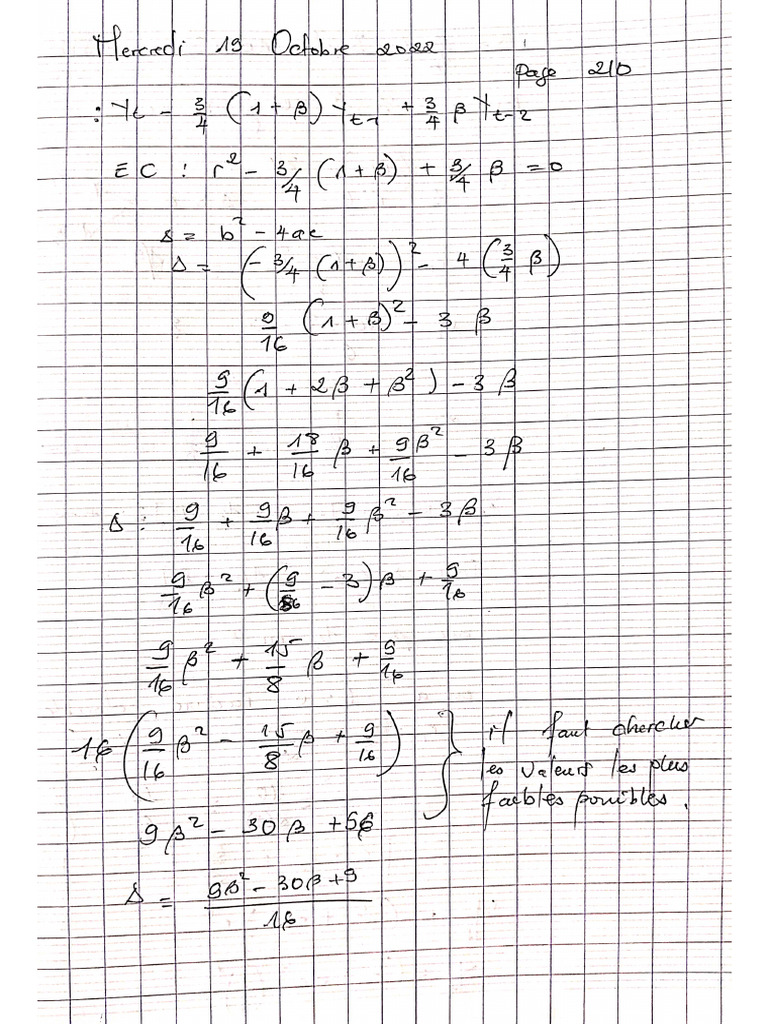 Mercredi 19 Octobre 2022
Page 210
: Yt - 3/4 (1 + β) Yt-1 + 3/4 β Yt-2
EC : r² - 3/4 (1 + β) + 3/4 β = 0
Δ = b² - 4ac
Δ = (-3/4 (1 + β))² - 4 (3/4 β)
9/16 (1 + β)² - 3 β
9/16 (1 + 2β + β²) - 3 β
9/16 + 18/16 β + 9β²/16 - 3 β
Δ : 9/16 + 9/16 β + 9/16 β² - 3 β
9/16 β² + (9/8 - 3) β + 9/16
9/16 β² + 15/8 β + 9/16
16 (9/16 β² - 15/8 β + 9/16) } il faut chercher
les valeurs les plus
faibles possibles.
9β² - 30 β + 
Δ = (9β² - 30β + 9)/16